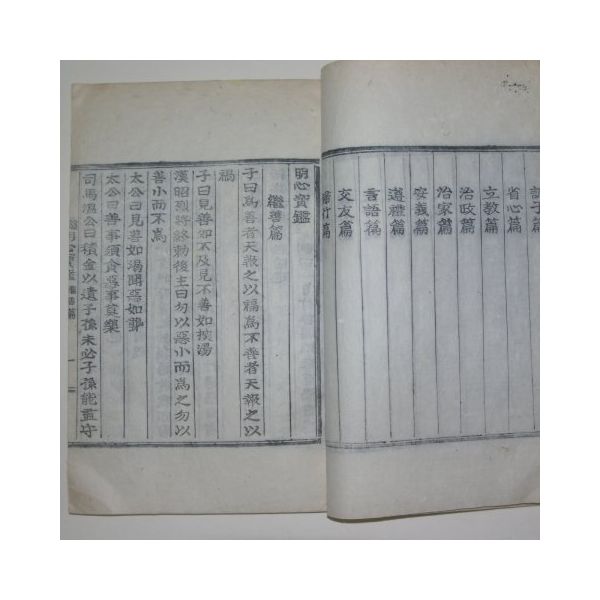 訓子篇
省心篇
立敎篇
治政篇
治家篇
安義篇
遵禮篇
言語篇
交友篇
婦行篇
明心寶鑑
繼善篇
子曰爲善者天報之以福爲不善者天報之以
禍
子曰見善如不及見不善如探湯
漢昭烈將終勅後主曰勿以惡小而爲之勿以
善小而不爲
太公曰見善如渴聞惡如聾
太公曰善事須貪惡事莫樂
司馬溫公曰積金以遺子孫未必子孫能盡守